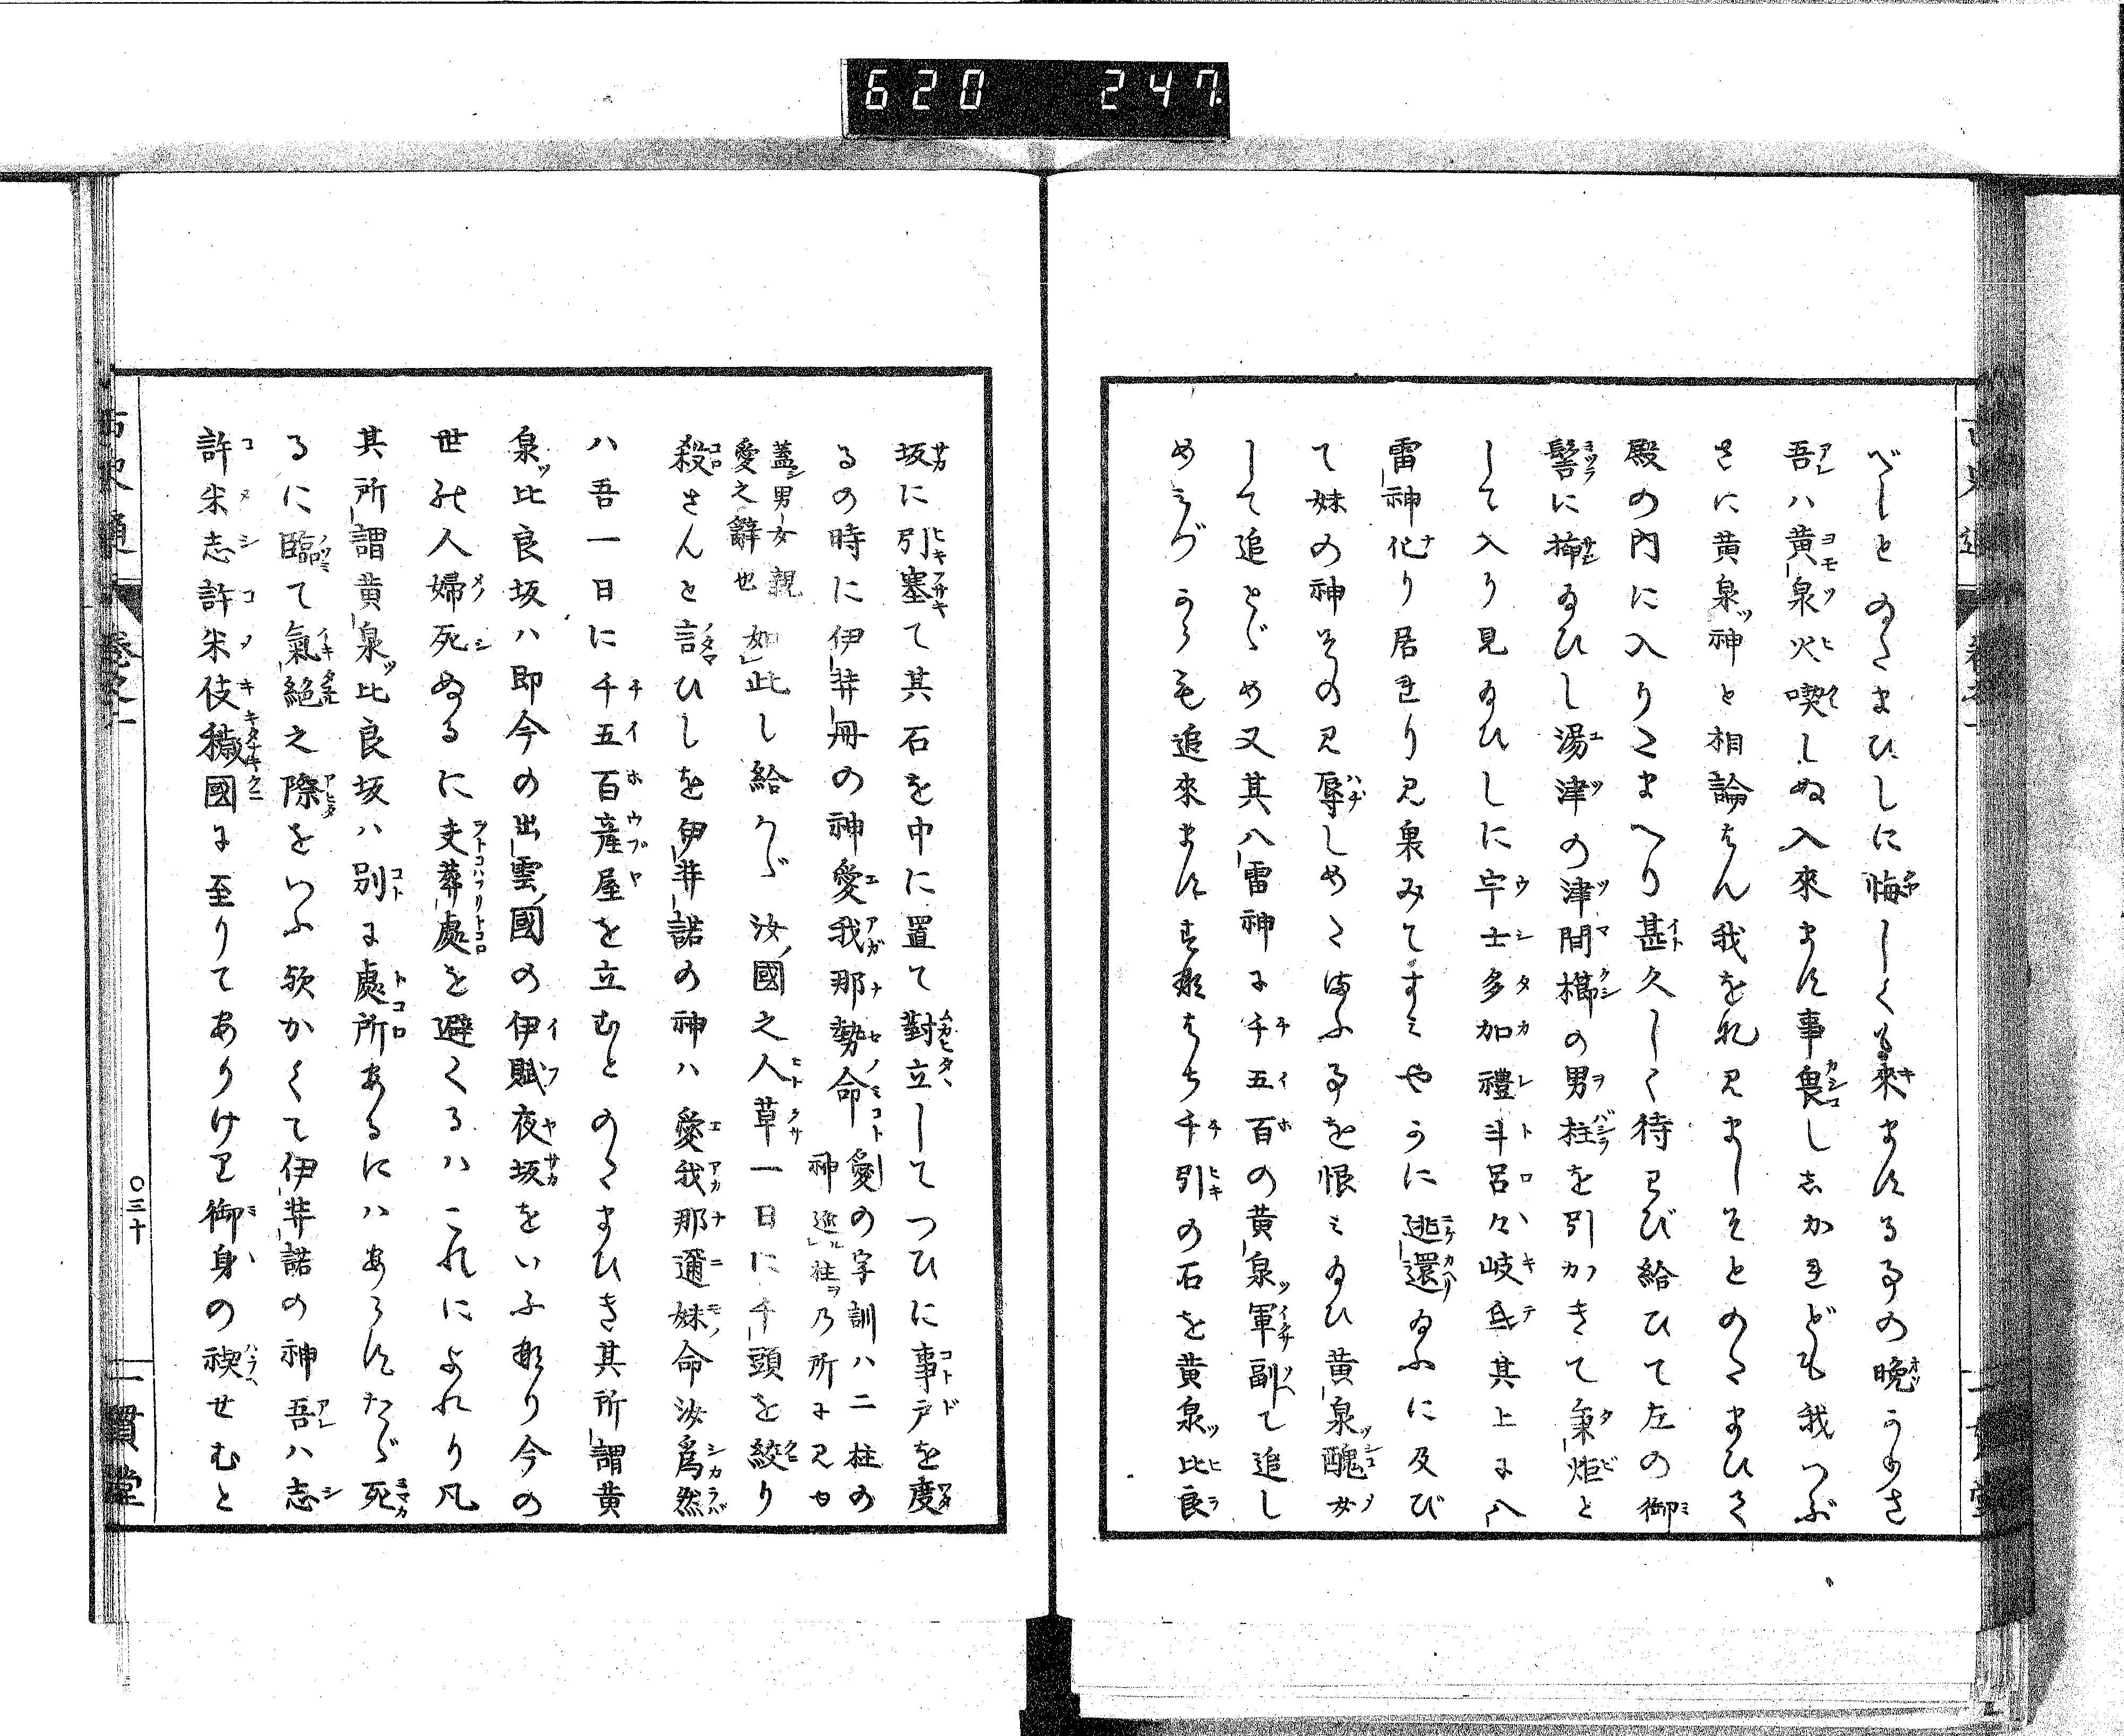 620 247
べしとのたまひしに悔しくも來まするの事の晩かりき
吾ハ黄泉火喫しぬ入來ます事畏し志かれども我つぶ
さに黄泉神と相論はん我をな見ましそとのたまひて
殿の内に入りたまへり甚久しく待わび給ひて左の御
髻に挿給ひし湯津の津間櫛の男柱を引かきて秉炬と
して入り見給ひしに宇士多加禮斗呂々岐弖其上に八
雷神化り居れり見裏みてすみやかに逃還給ふに及び
て妹の神その見辱しめたまふ事を恨み給ひ黄泉醜女
して追とゞめ又其八雷神に千五百の黄泉軍副て追し
めらる
追來ます
千引の石を黄泉比良
坂に引塞て其石を中に置て對立してつひに事戸を度
るの時に伊弉冊の神愛我那勢命
愛の字訓ハ二柱の
神
乃所に見ゆ
蓋男女親
愛之辭也
如此し給はゞ汝國之人草一日に千頭を絞り
殺さんと言ひしを伊弉諾の神ハ愛我那邇妹命汝爲然
ハ吾一日に千五百産屋を立むとのたまひき其所謂黄
泉比良坂ハ即今の出雲國の伊賦夜坂をいふ也今の
世の人婦死ぬるに夫葬處を避くるハこれによれり凡
其所謂黄泉比良坂ハ別に處所あるにハあらずたゞ死
るに臨て氣絶之際をいふ歟かくて伊弉諾の神吾ハ志
許米志許米伎穢國に至りてありけり御身の禊せむと
古史通
卷之一
〇三十
一貫堂